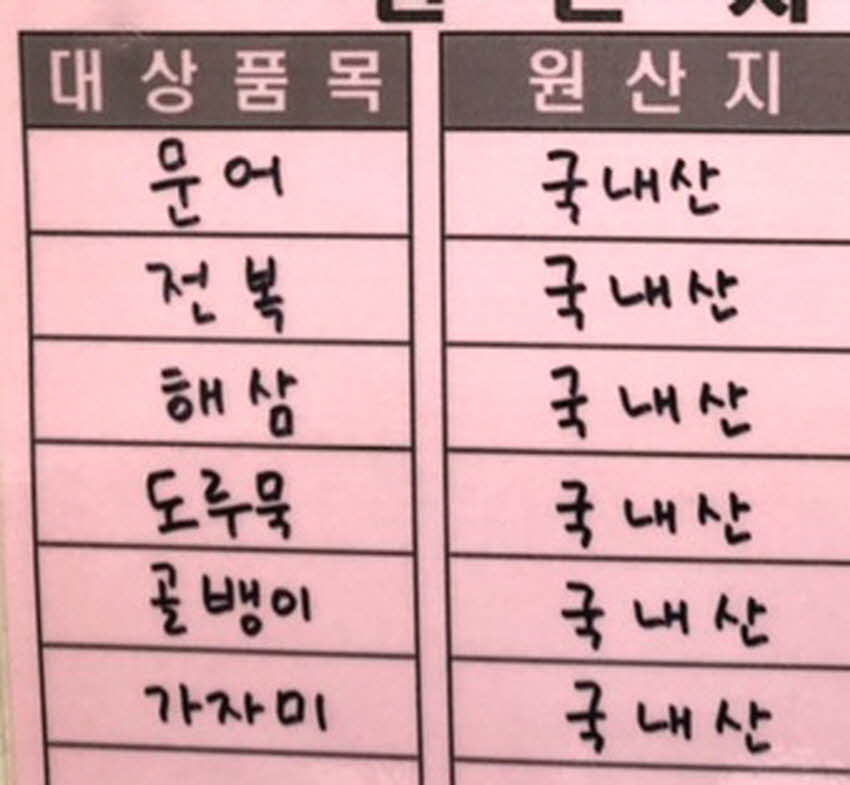 대상품목 원산지
문어 국내산
전복 국내산
해삼 국내산
도루묵 국내산
골뱅이 국내산
가자미 국내산